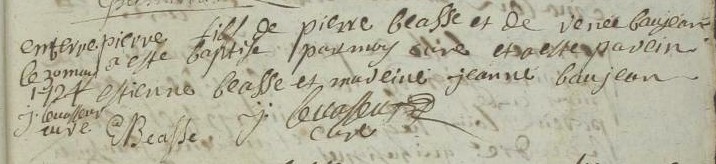 pierre fils de pierre beasse et de renee baujean
a este baptise par moy curé et a este parein
estienne beasse et mareine jeanne baujean
E Beasse J levasseur
curé
enterre
le 20 may
1724
J levasseur
curé